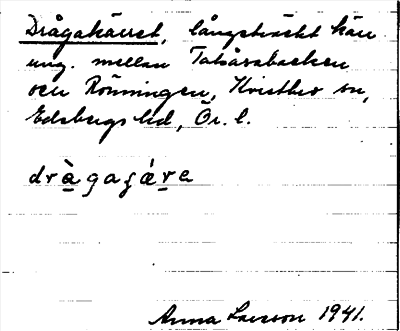 Drågakärret, långsträckt kärr
ung. mellan Tatåsabacken
och Rönningen, Kvistbro sn,
Edsbergs hd, Ör. l.
dràgagǽre
Anna Larsson 1941.